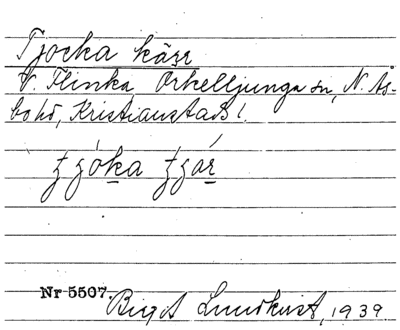 Tjocka kärr
V. Flinka, Örkelljunga sn, N. Ås-
bo hd, Kristianstads l.
Nr 5507. Birgit Lundkvist, 1939